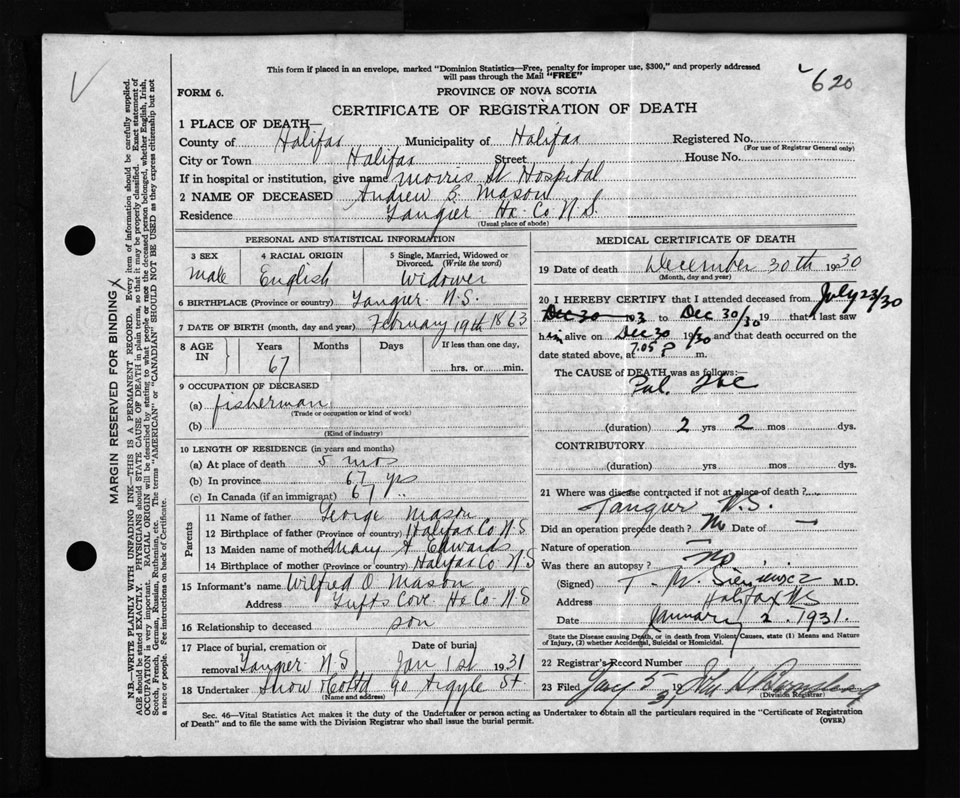 This form if placed in an envelope, marked "Dominion Statistics—Free, penalty for improper use, $300," and properly addressed
will pass through the Mail "FREE"
620
FORM 6.
PROVINCE OF NOVA SCOTIA
CERTIFICATE OF REGISTRATION OF DEATH
1 PLACE OF DEATH—
County of Halifax Municipality of Halifax Registered No.
(For use of Registrar General only)
City or Town Halifax Street House No.
If in hospital or institution, give name Morris St Hospital
2 NAME OF DECEASED Andrew B. Mason
Residence Tangier Hx. Co N.S.
(Usual place of abode)
PERSONAL AND STATISTICAL INFORMATION
3 SEX 4 RACIAL ORIGIN 5 Single, Married, Widowed or
Divorced. (Write the word)
Male English Widower
6 BIRTHPLACE (Province or country) Tangier N.S.
7 DATE OF BIRTH (month, day and year) February 19th 1863
8 AGE IN Years Months Days If less than one day,
67 hrs. or min.
9 OCCUPATION OF DECEASED
(a) fisherman
(Trade or occupation or kind of work)
(b)
(Kind of industry)
10 LENGTH OF RESIDENCE (in years and months)
(a) At place of death 5 mos
(b) In province 67 yrs
(c) In Canada (if an immigrant) 67 "
Parents
11 Name of father George Mason
12 Birthplace of father (Province or country) Halifax Co N S
13 Maiden name of mother Mary A Edwards
14 Birthplace of mother (Province or country) Halifax Co N S
15 Informant's name Wilfred O. Mason
Address Tufts Cove Hx Co N.S
16 Relationship to deceased son
17 Place of burial, cremation or Date of burial
removal Tangier N S Jan 1st 1931
18 Undertaker Snow & Co Ltd 90 Argyle St
(Name and address)
MEDICAL CERTIFICATE OF DEATH
19 Date of death December 30th 1930
(Month, day and year)
20 I HEREBY CERTIFY that I attended deceased from July 23/30
Dec 30 193 to Dec 30/30 19 that I last saw
him alive on Dec 30 19/30 and that death occurred on the
date stated above, at 7.05 P m.
The CAUSE of DEATH was as follows:—
Pul. Tbc
(duration) 2 yrs 2 mos dys.
CONTRIBUTORY
(duration) yrs mos dys.
21 Where was disease contracted if not at place of death?
Tangier N.S.
Did an operation precede death? No Date of —
Nature of operation —
Was there an autopsy? no
(Signed) T. W. M.D.
Address Halifax NS
Date January 2. 1931.
State the Disease causing Death, or in death from Violent Causes, state (1) Means and Nature
of Injury, (2) whether Accidental, Suicidal or Homicidal.
22 Registrar's Record Number
23 Filed 5 31 John
(Division Registrar)
Sec. 46—Vital Statistics Act makes it the duty of the Undertaker or person acting as Undertaker to obtain all the particulars required in the "Certificate of Registration
of Death" and to file the same with the Division Registrar who shall issue the burial permit.
(OVER)
MARGIN RESERVED FOR BINDING
N.B.—WRITE PLAINLY WITH UNFADING INK—THIS IS A PERMANENT RECORD. Every item of information should be carefully supplied.
AGE should be stated EXACTLY. PHYSICIANS should STATE CAUSE OF DEATH in plain terms, so that it may be properly classified. Exact statement of
OCCUPATION is very important. RACIAL ORIGIN will be described by stating to what people or race the deceased person belonged, whether English, Irish,
Scotch, French, German, Russian, Ruthenian, etc. The terms "AMERICAN" or "CANADIAN" SHOULD NOT BE USED as they express citizenship but not
a race or people. See instructions on back of Certificate.